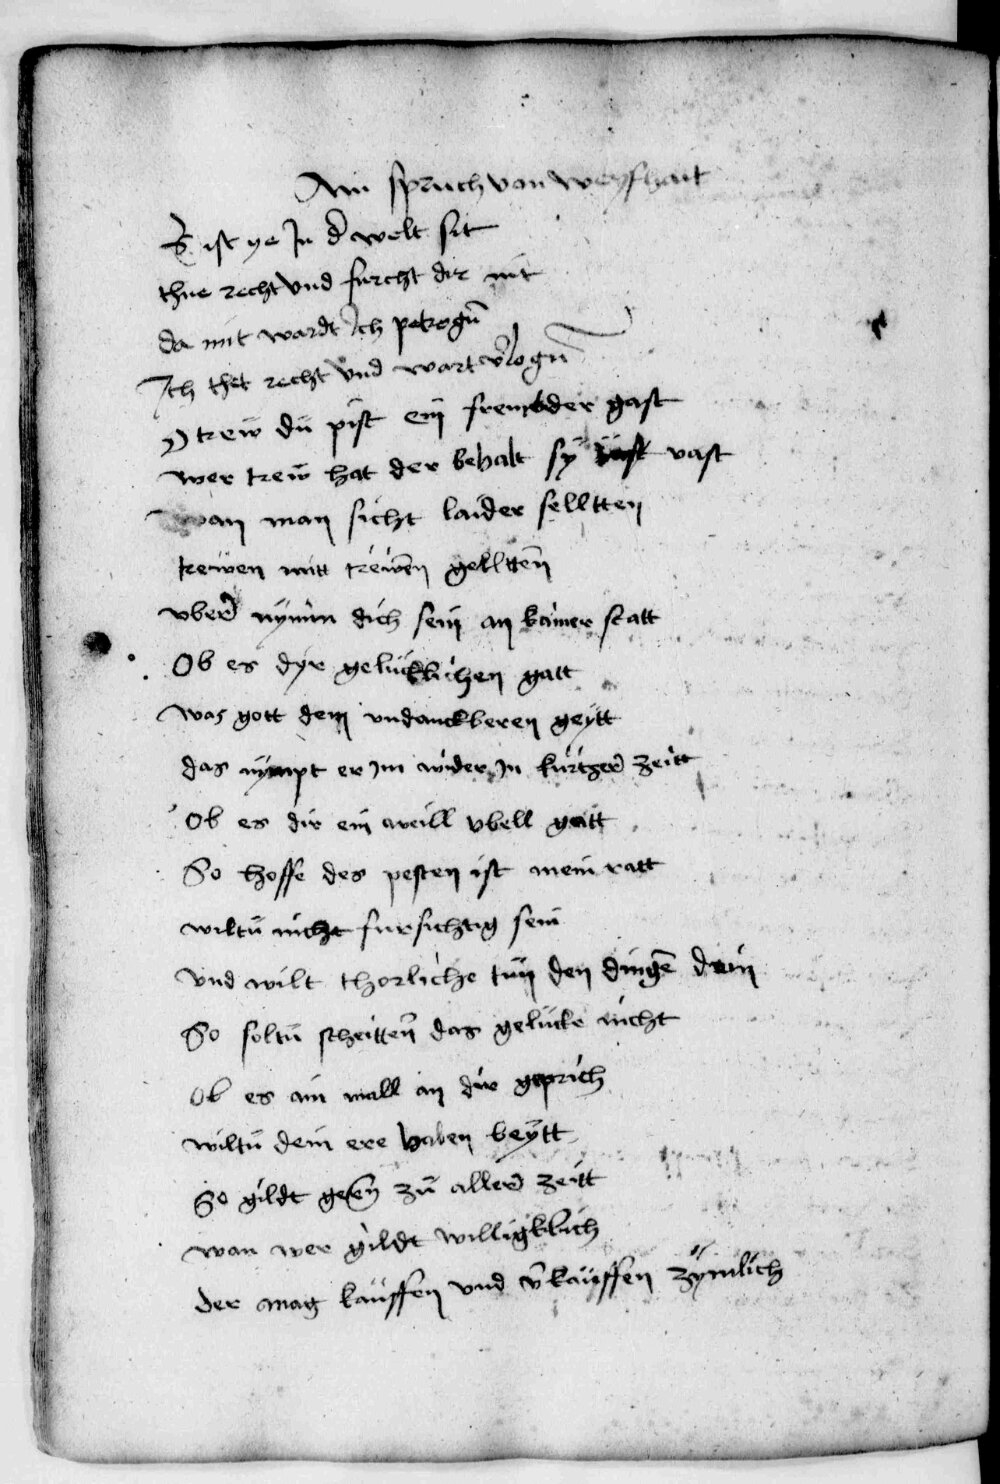 Ain spruch von weyshait
Es ist ye Jn d' welt sit
thue recht vnd furcht dir nit
da mit wardt Jch petrogn̄
Jch thet recht vnd wart v̄logn̄
O trew dü pist ein frembder gast
wer trew hat der behalt sy vast
wan man sicht laider selltten
trewen mitt trewen gelltten̄
vber nymm dich sein an kainer statt
Ob es dyr gelücklichen gatt
was gott dem vndanckberen geytt
das nympt er Jm wider Jn kurtzer zeitt
Ob es dir ein weill vbell gatt
So hoffe des pesten ist mein ratt
wiltü nicht fursichtig sein
vnd wilt thorliche tün den dingē dein
So soltü scheltten̄ das gelücke nicht
Ob es ain mall an dir geprich
wiltü dein ere haben beytt
So gildt gern zü aller zeitt
wan wer gildt willigklich
der mag kauffen vnd v̄kauffen zymlich